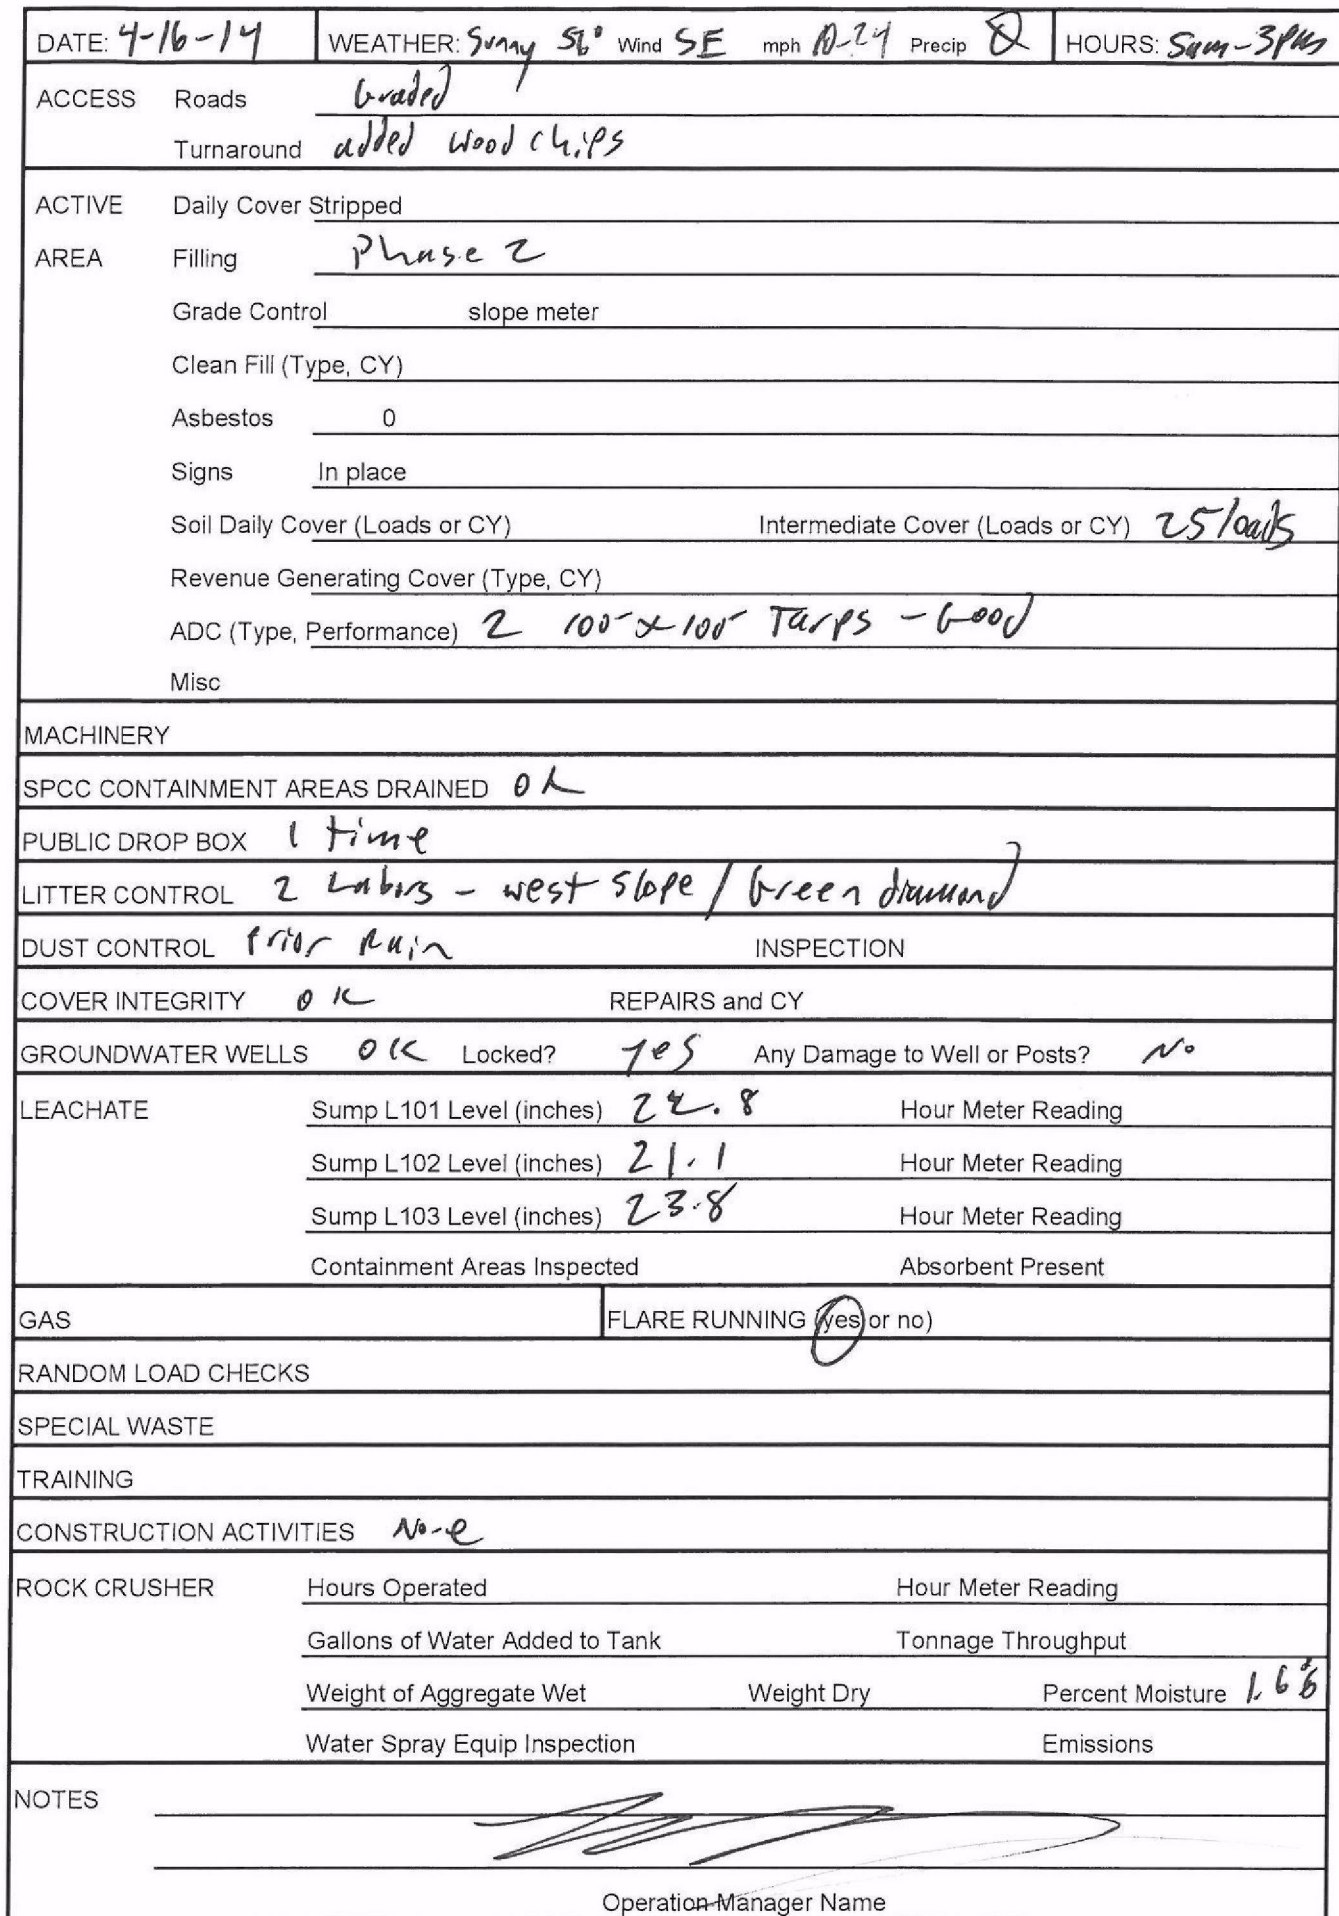 DATE: 4-16-14 WEATHER: Sunny 56° Wind SE mph 10-24 Precip 0 HOURS: 5am-3pm
ACCESS Roads Graded
Turnaround added wood chips
ACTIVE Daily Cover Stripped
AREA Filling Phase 2
Grade Control slope meter
Clean Fill (Type, CY)
Asbestos 0
Signs In place
Soil Daily Cover (Loads or CY) Intermediate Cover (Loads or CY) 25 loads
Revenue Generating Cover (Type, CY)
ADC (Type, Performance) 2 100 x 100 Tarps - Good
Misc
MACHINERY
SPCC CONTAINMENT AREAS DRAINED OK
PUBLIC DROP BOX 1 time
LITTER CONTROL 2 Labors - west slope / Green diamond
DUST CONTROL Prior Rain INSPECTION
COVER INTEGRITY OK REPAIRS and CY
GROUNDWATER WELLS OK Locked? yes Any Damage to Well or Posts? No
LEACHATE Sump L101 Level (inches) 22.8 Hour Meter Reading
Sump L102 Level (inches) 21.1 Hour Meter Reading
Sump L103 Level (inches) 23.8 Hour Meter Reading
Containment Areas Inspected Absorbent Present
GAS FLARE RUNNING (yes or no)
RANDOM LOAD CHECKS
SPECIAL WASTE
TRAINING
CONSTRUCTION ACTIVITIES None
ROCK CRUSHER Hours Operated Hour Meter Reading
Gallons of Water Added to Tank Tonnage Throughput
Weight of Aggregate Wet Weight Dry Percent Moisture
Water Spray Equip Inspection Emissions
NOTES
Operation Manager Name